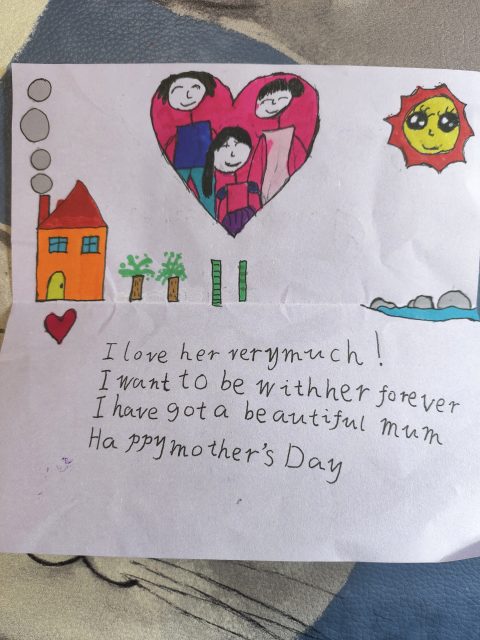 I love her verymuch!
I want to be withher forever
I have gota beautiful mum
Happymother's Day